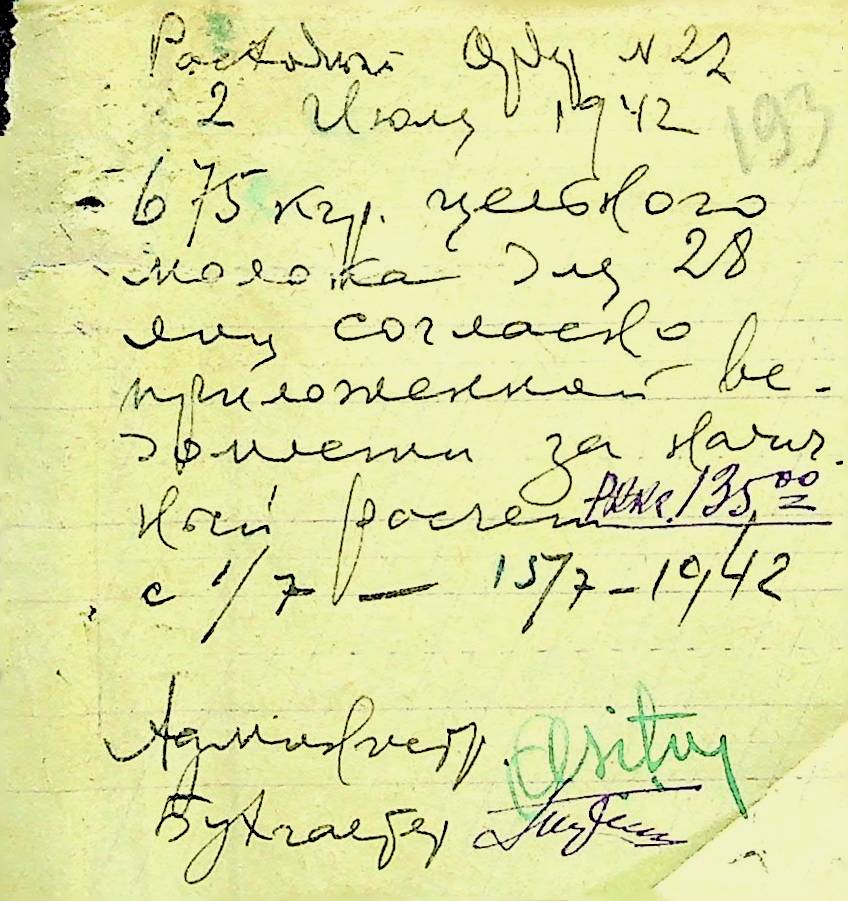 Расходный Орд N 22
2 Июля 1942
193
675 кгр. цельного
молока для 28
яиц согласно
приложенной ве-
домости за налич.
ный расчет РККА. 135,00
с 1/7 — 15/7 - 1942
Администр.
Бухгалтер